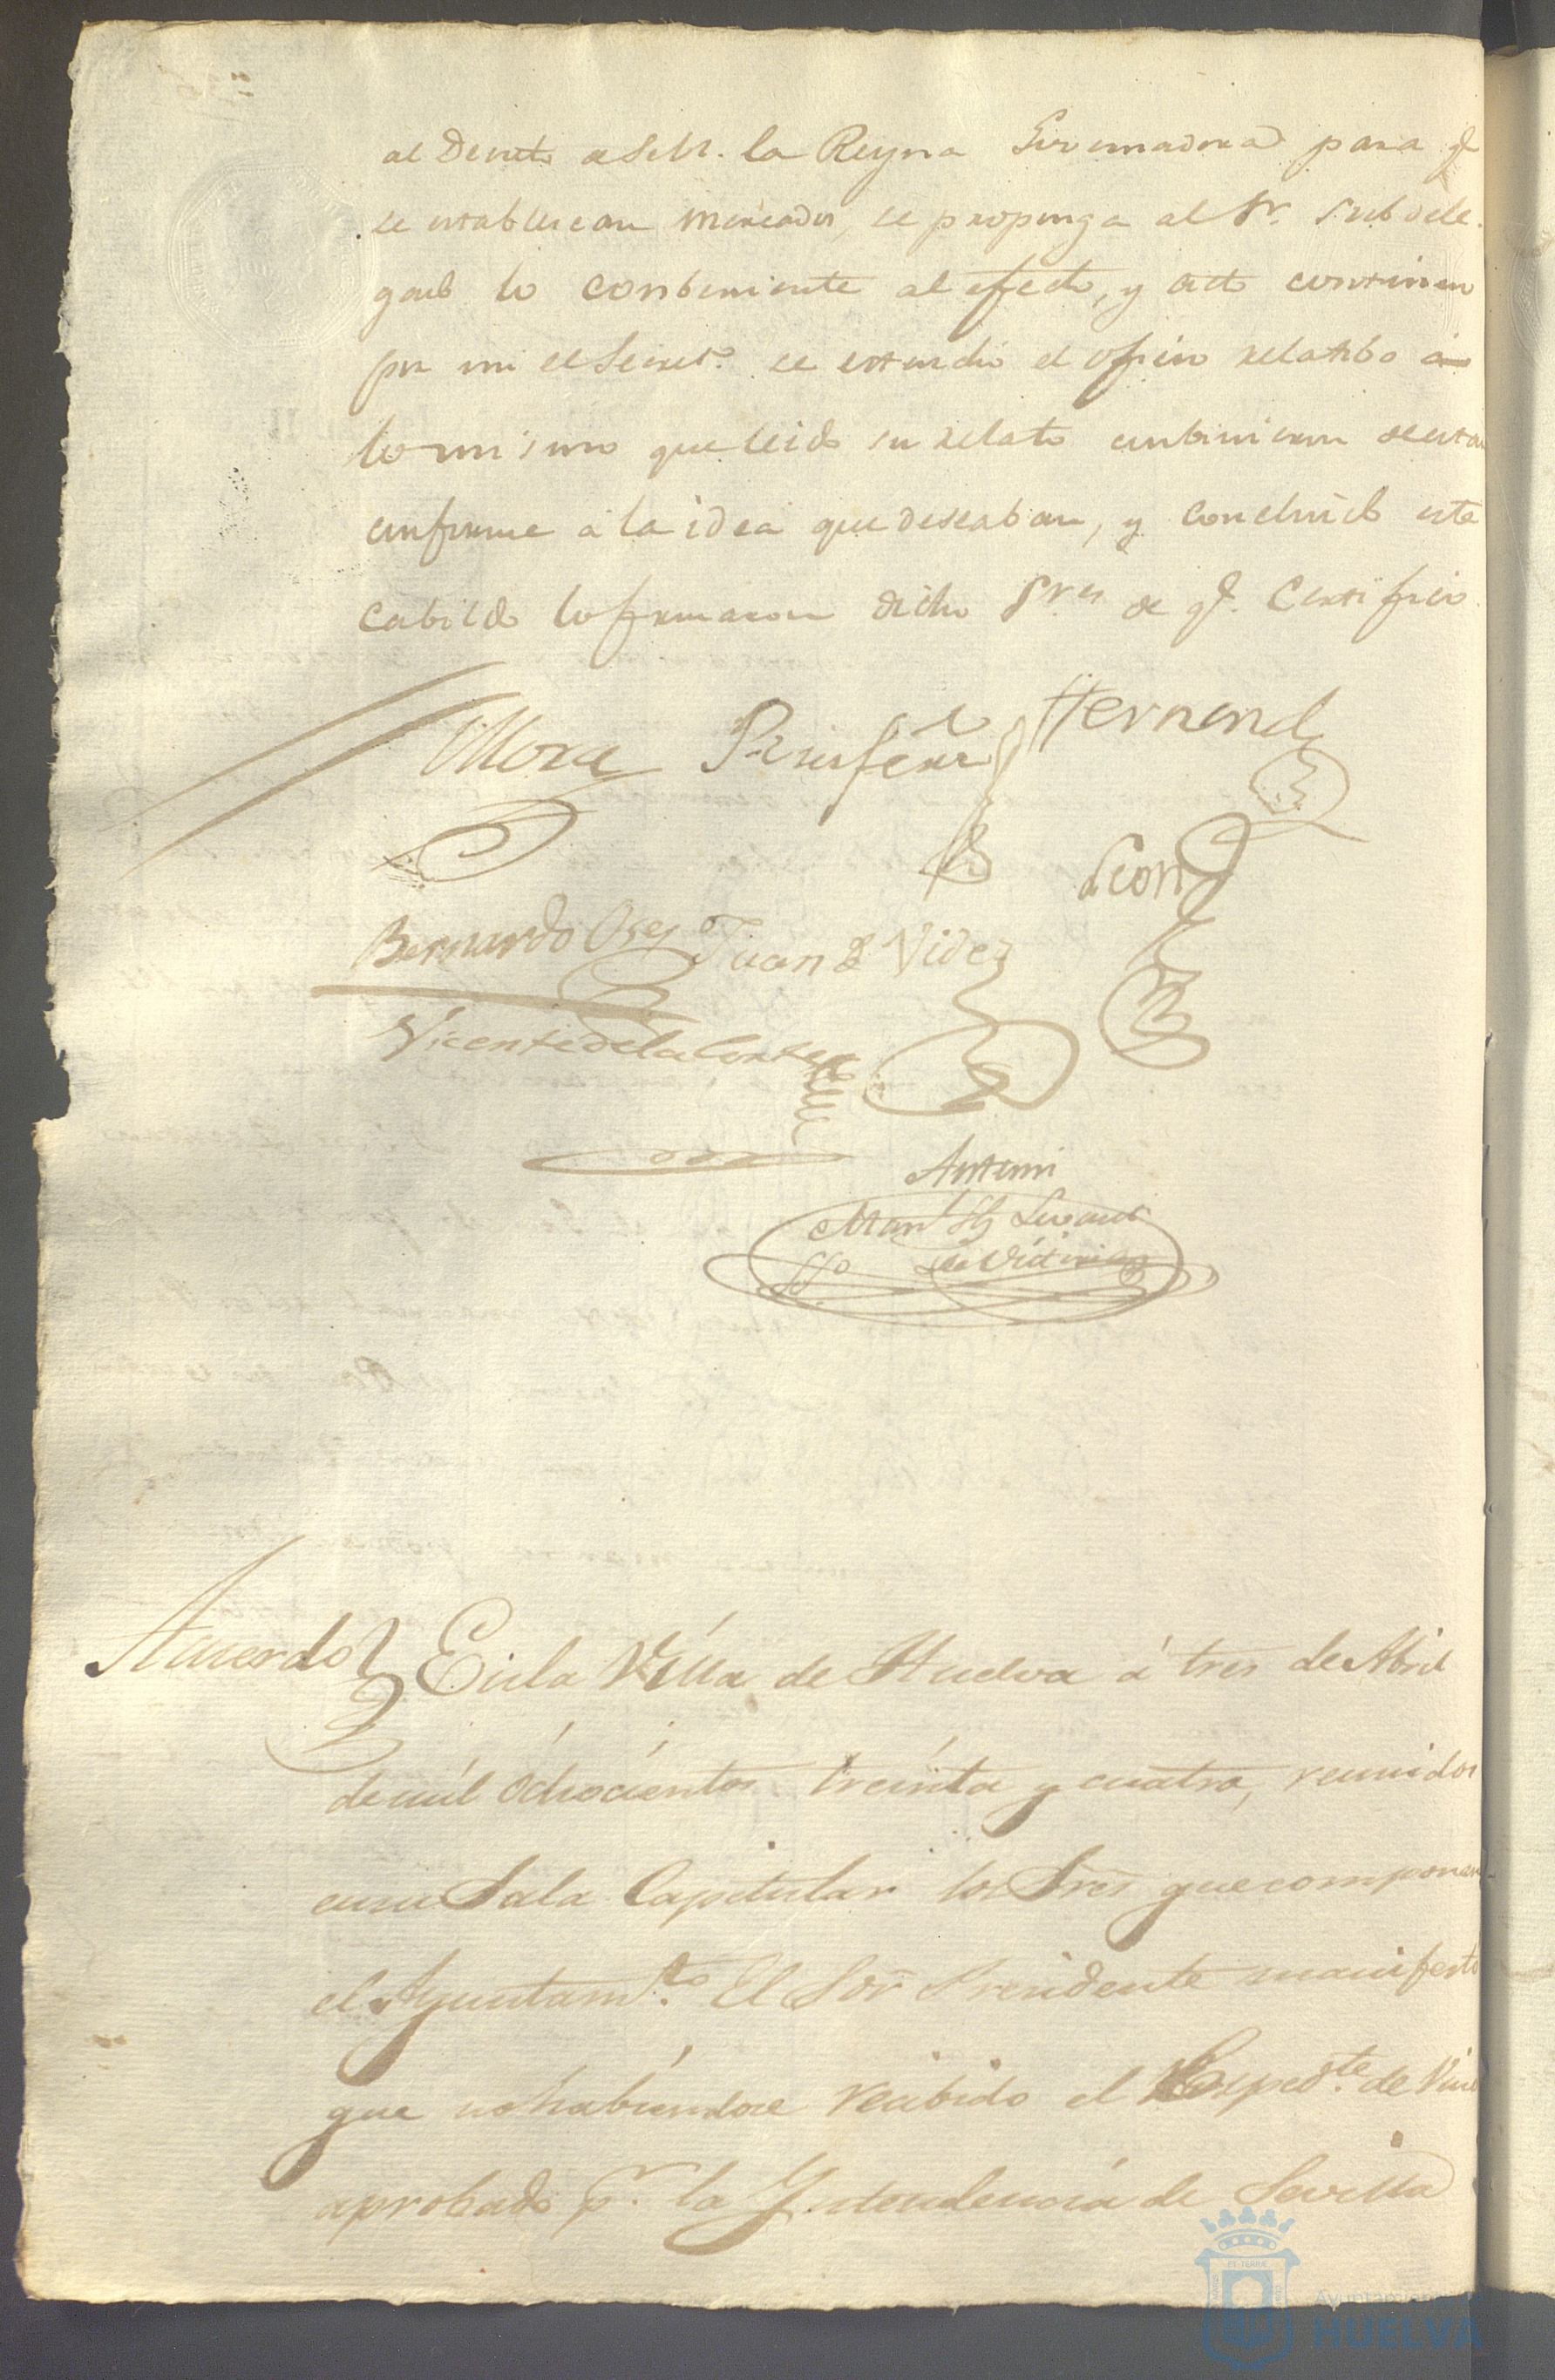 al Decreto de S.M. la Reyna Governadora para q.e
se establescan mercados, se proponga al Sr. Subdele-
gado lo conbeniente al efecto, y acto continuo
por mi el Secret.o se estendió el oficio relatibo á
lo mismo que leido su relato conbinieron de estar
conforme a la idea que deseaban, y concluido este
Cabildo lo firmaron dicho S.res de q.e Certifico
Mora Hernand
Leon
Bernardo Juan de Videz
Vicente de la Corte
Antemi
Man.l
de Victoria
Acuerdo En la Villa de Huelva á tres de Abril
de mil ochocientos treinta y cuatro, reunidos
en su Sala Capitular los Sres que componen
el Ayuntam.to El Sor Presidente manifestó
que no habiendose recibido el Exped.te de
aprobado p.r la Yntendencia de Sevilla
Ayuntamiento
HUELVA